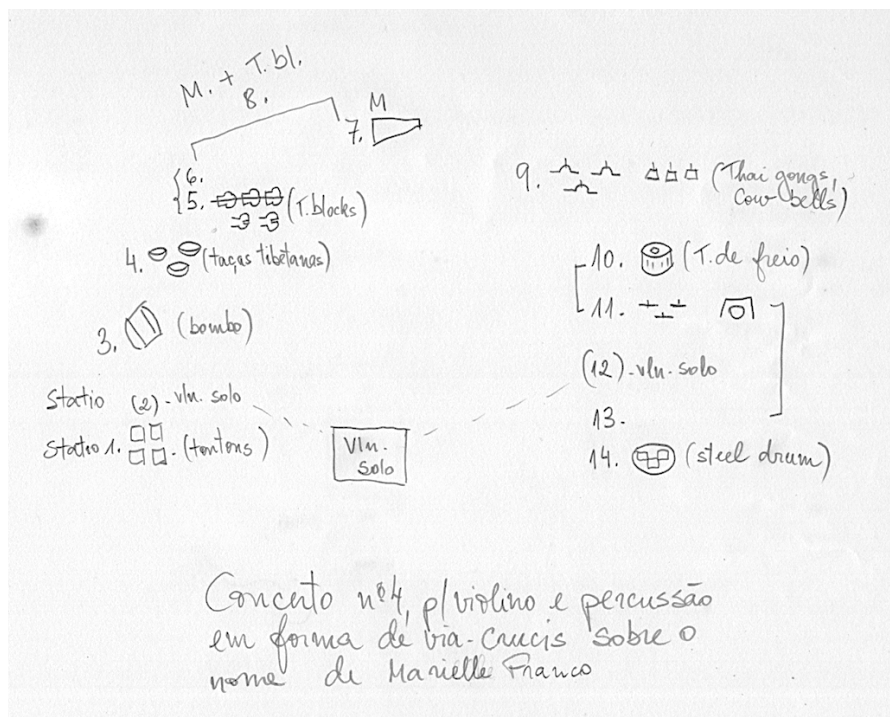 M. + T.bl.
8.
M
7.
{6.
{5. (T.blocks)
4. (taças tibetanas)
3. (bombo)
Statio (2) - vln. solo
Statio 1. - (tontons)
Vln.
Solo
9. (Thai gongs,
Cow bells)
10. (T. de freio)
11.
(12) - vln. solo
13.
14. (steel drum)
Concerto nº4, p/violino e percussão
em forma de via-crucis sobre o
nome de Marielle Franco